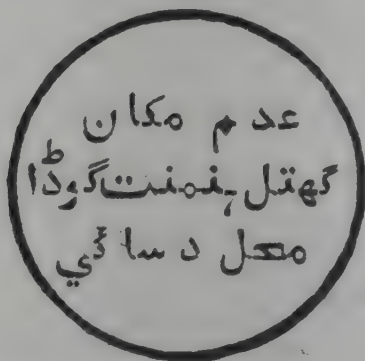 عدم مکان
گهتل ہنمنت گوڈا
محل دسائي